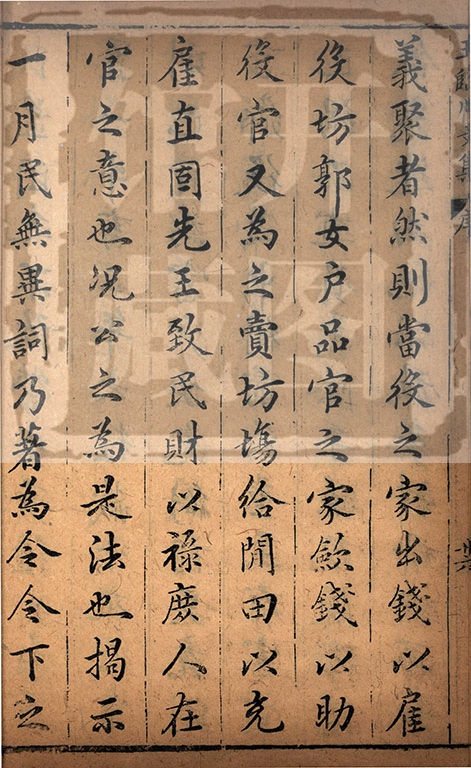 義聚者然則當役之家出錢以雇
役坊郭女户品官之家歛錢以助
役官又為之賣坊塲給閒田以充
雇直固先王致民財以祿庶人在
官之意也况公之為是法也揭示
一月民無異詞乃著為令令下之